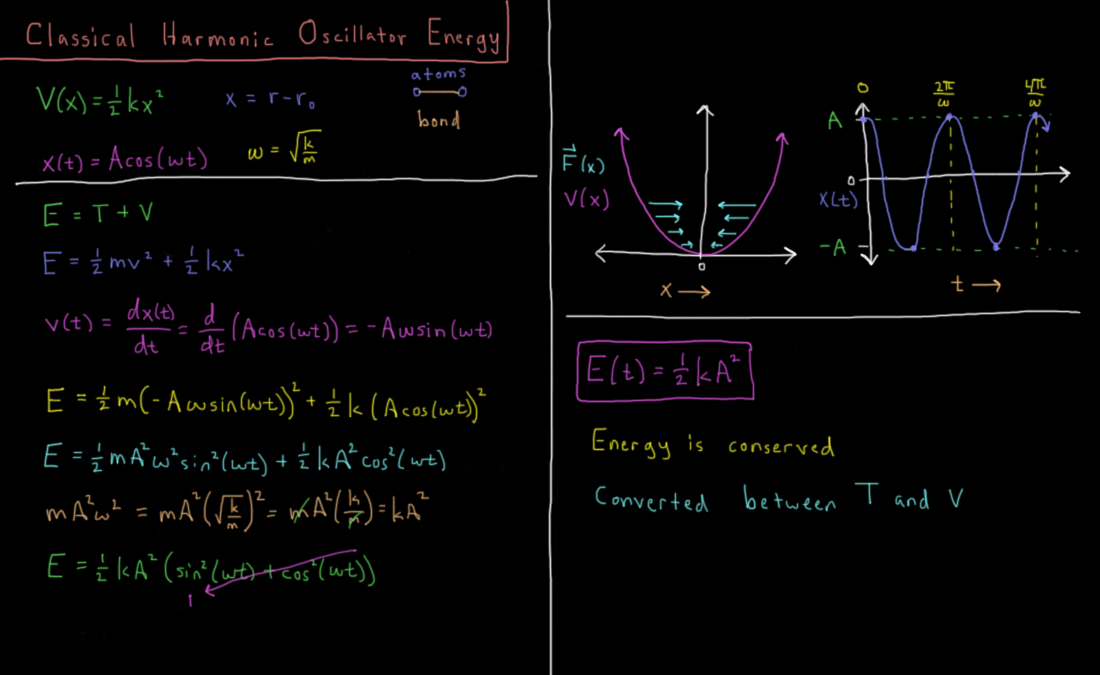 Classical Harmonic Oscillator Energy
V(x) = ½kx²
x = r - r₀
atoms
bond
x(t) = Acos(ωt)
ω = √(k/m)
E = T + V
E = ½mv² + ½kx²
v(t) = dx(t)/dt = d/dt (Acos(ωt)) = -Aωsin(ωt)
E = ½m(-Aωsin(ωt))² + ½k(Acos(ωt))²
E = ½mA²ω²sin²(ωt) + ½kA²cos²(ωt)
mA²ω² = mA²(√(k/m))² = mA²(k/m) = kA²
E = ½kA²(sin²(ωt) + cos²(ωt))
1
F⃗(x)
V(x)
0
x →
0 2π/ω 4π/ω
A
0
x(t)
-A
t →
E(t) = ½kA²
Energy is conserved
Converted between T and V